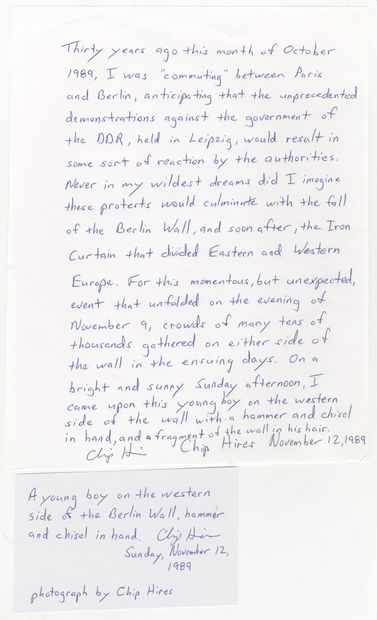 Thirty years ago this month of October
1989, I was "commuting" between Paris
and Berlin, anticipating that the unprecedented
demonstrations against the government of
the DDR, held in Leipzig, would result in
some sort of reaction by the authorities.
Never in my wildest dreams did I imagine
these protests would culminate with the fall
of the Berlin Wall, and soon after, the Iron
Curtain that divided Eastern and Western
Europe. For this momentous, but unexpected,
event that unfolded on the evening of
November 9, crowds of many tens of
thousands gathered on either side of
the wall in the ensuing days. On a
bright and sunny Sunday afternoon, I
came upon this young boy on the western
side of the wall with a hammer and chisel
in hand, and a fragment of the wall in his hair.
Chip Hires Chip Hires November 12, 1989
A young boy on the western
side of the Berlin Wall, hammer
and chisel in hand. Chip Hires
Sunday, November 12,
1989
photograph by Chip Hires